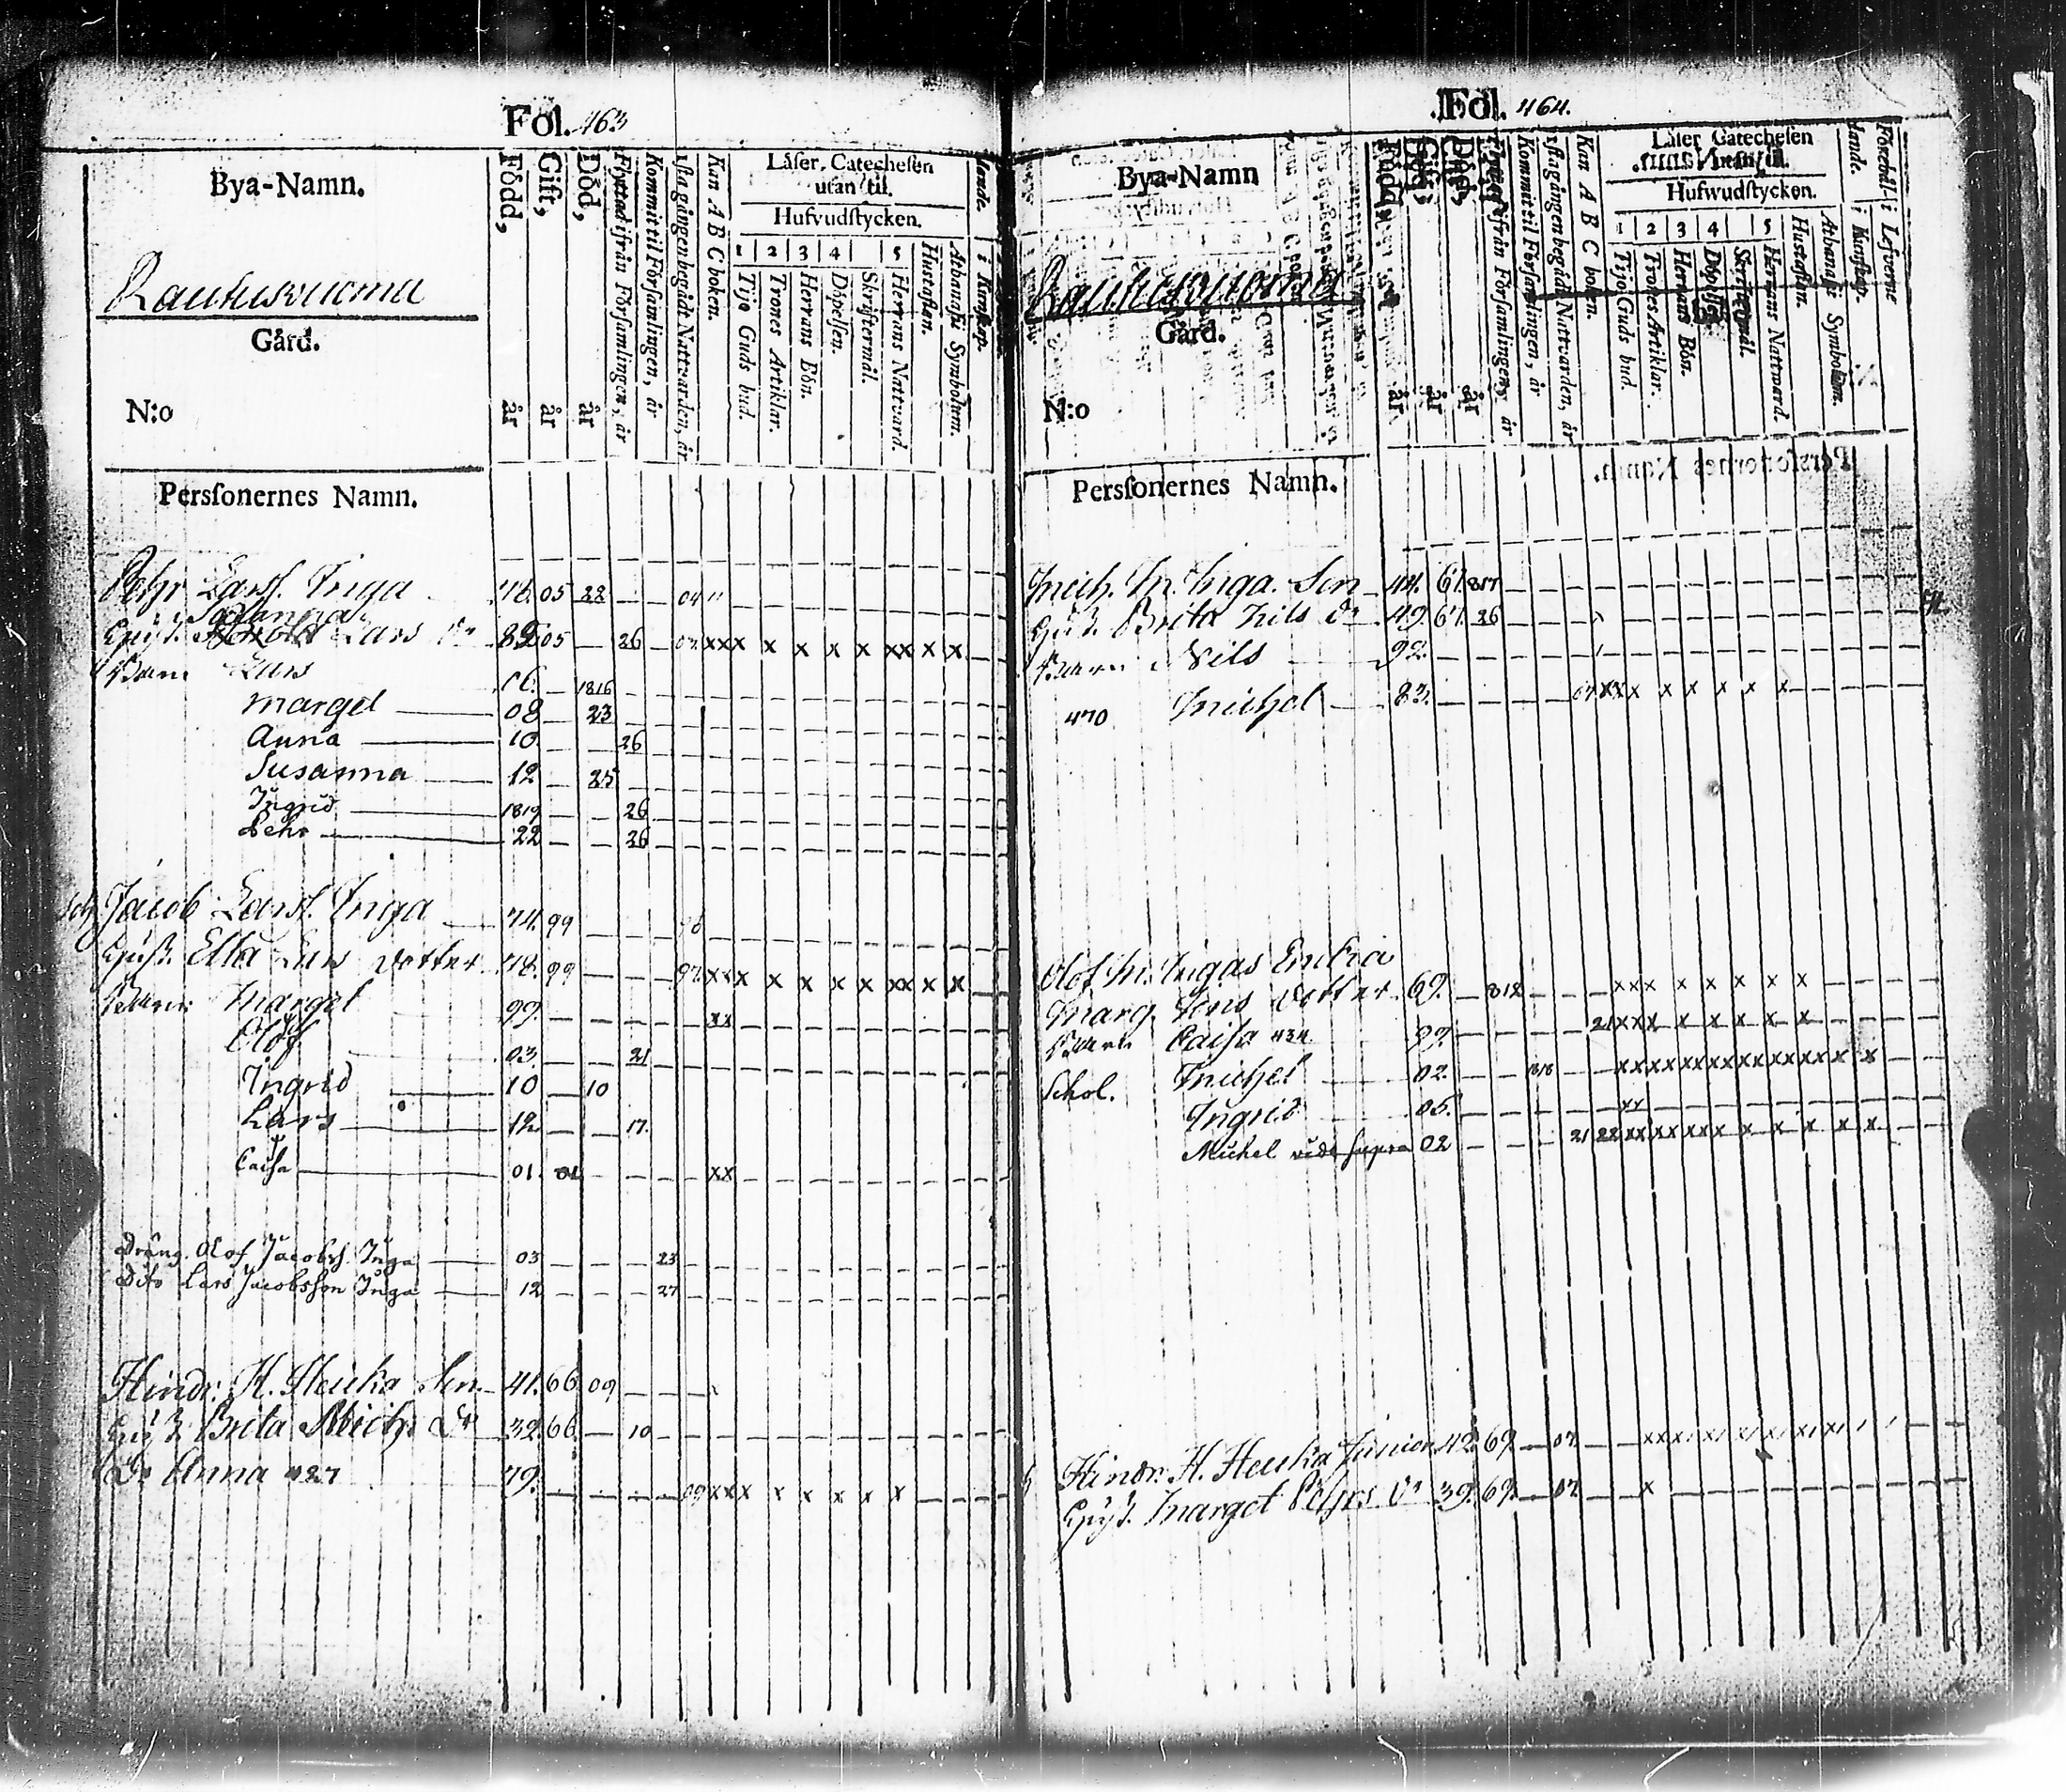 Fol. 463
Bya-Namn.
Rauhusvuoma
Gård.
N:o
Född, år
Gift, år
Död, år
Flyttad ifrån Församlingen, år
Kommit til Församlingen, år
1sta gången begådt Nattvarden, år
Kan A B C boken.
Låser Catechesen
utan til.
Hufvudstycken.
1 2 3 4 5
Tijo Guds bud.
Trones Artiklar.
Herrans Bön.
Döpelsen.
Skriftermål.
Herrans Nattvard.
Hustaflan.
Athanasii Symbolum.
i Kunskap.
Perssonernes Namn.
Pehr Larss. Inga 78. 05 22 04
Susanna
Hust. Lars Dr 05 26 xxx x x x x xx x x
Barn Lars 06. 1816
Margel 08 23
Anna 10 26
Susanna 12 25
Ingrid 1819 26
Pehr 22 26
Jacob Larss. Inga 74. 99
Hust. Ella Lars dotter 78. 99 97 xxx x x x x xx x x
Barn Marget 99. xx
Olof 03. 21
Ingrid 10 10
Lars 12 17.
Caisa 01. 01 xx
Dräng. Olof Jacobss. Inga 03 23
Dito Lars Jacobsson Inga 12 27
Hindr. H. Heika Sen. 41. 66 09
Hust. Brita Mich. Dr 39. 66. 10
Dr Anna 427 79. 09 xxx x x x x x
Fol. 464.
Bya-Namn
Rauhusvuoma
Gård.
N:o
Född, år
Gift, år
Död, år
Flyttad ifrån Församlingen, år
Kommit til Församlingen, år
1sta gången begådt Nattvarden, år
Kan A B C boken.
Låser Catechesen
utan til.
Hufwudstycken.
1 2 3 4 5
Tijo Guds bud.
Trones Artiklar.
Herrans Bön.
Döpelsen.
Skriftermål.
Herrans Nattvard.
Hustaflan.
Athanasii Symbolum.
i Kunskap.
Förehål- i Lefverne
Perssonernes Namn.
Mich. M. Inga. Sen 44. 67. 817
Hust. Brita Nils Dr 49. 67. 26
Barn Nils 92.
470 Michel 83. 07 xxx x x x x x
Olof M. Ingas Enkia
Marg. Jons dotter 69. 812 xxx x x x x x
Barn Caisa 434 99. 21 xxx x x x x x
Schol. Michel 02. 818 xxxxxxxxxxxxx x x
Ingrid 05. xx
Michel vide supra 02 21 22 xx xx xxx x x x x x
Hindr. H. Heika Junior 42. 69. 07.
Hust. Marget Pehrs Dr 39. 69. 07. x